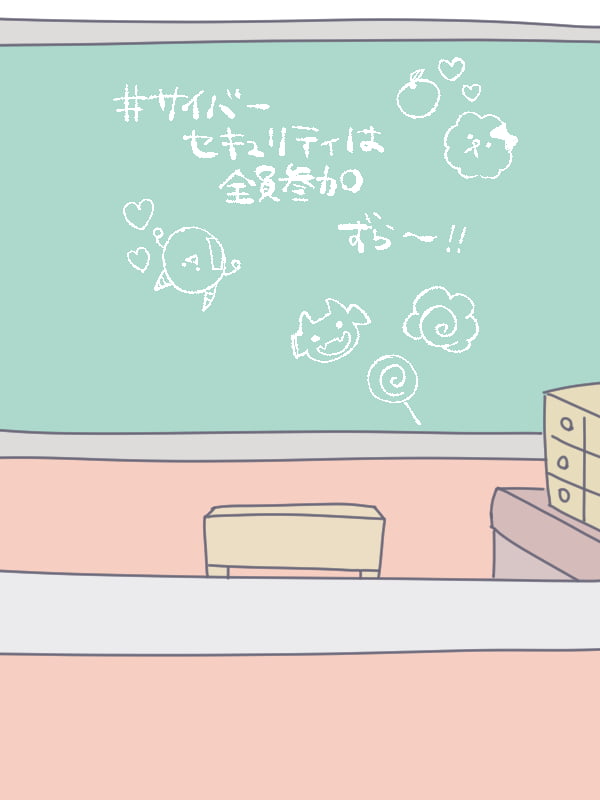 #サイバー
セキュリティは
全員参加
ずら〜!!